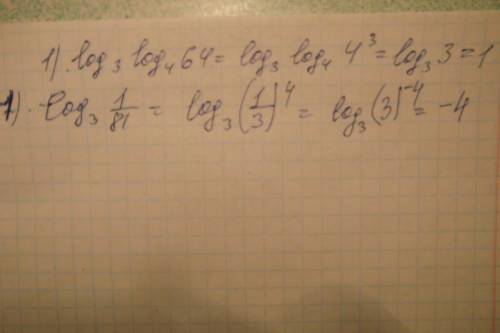 1) log₃ log₄ 64 = log₃ log₄ 4³ = log₃ 3 = 1
1) log₃ 1/81 = log₃ (1/3)⁴ = log₃ (3)⁻⁴ = -4